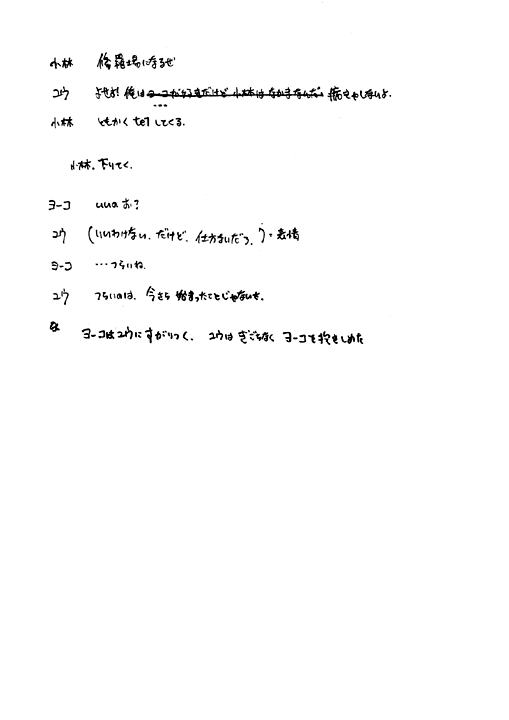 小林 修羅場になるぜ
ユウ よせよ! 俺はヨーコが好きだけど 小林はなかまなんだ。 しないよ。
…
小林 ともかく tel してくる。
小林。下りてく。
ヨーコ いいのぉ?
ユウ (いいわけない。だけど、仕方ないだろ。)・表情
ヨーコ …つらいね。
ユウ つらいのは、今さら始まったことじゃないぜ。
ヨーコはユウにすがりつく。 ユウはぎごちなく ヨーコを抱きしめた